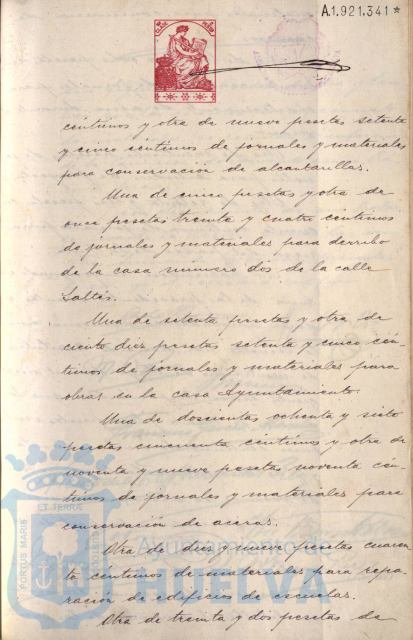 A.1.921.341*
céntimos y otra de nueve pesetas setenta
y cinco céntimos de jornales y materiales
para conservación de alcantarillas.
Una de cinco pesetas y otra de
once pesetas treinta y cuatro céntimos
de jornales y materiales para derribo
de la casa número dos de la calle
Saltés.
Una de setenta pesetas y otra de
ciento diez pesetas setenta y cinco cén-
timos de jornales y materiales para
obras en la casa Ayuntamiento.
Una de doscientas ochenta y siete
pesetas cincuenta céntimos y otra de
noventa y nueve pesetas noventa cén-
timos de jornales y materiales para
conservación de aceras.
Otra de diez y nueve pesetas cuaren-
ta céntimos de materiales para repa-
ración de edificios de escuelas.
Otra de treinta y dos pesetas de
PORTUS MARIS
ET TERRÆ
CUSTODIA
Ayuntamiento de
HUELVA